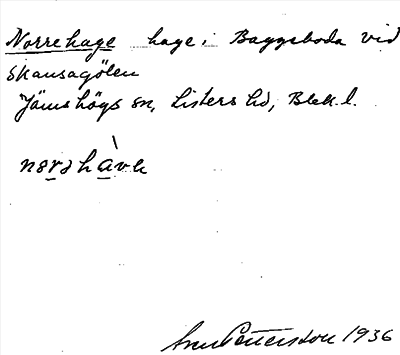 Norrehage hage i Baggeboda vid
Skansagölen
Jämshögs sn, Listers hd, Blek. l.
Pettersson 1936